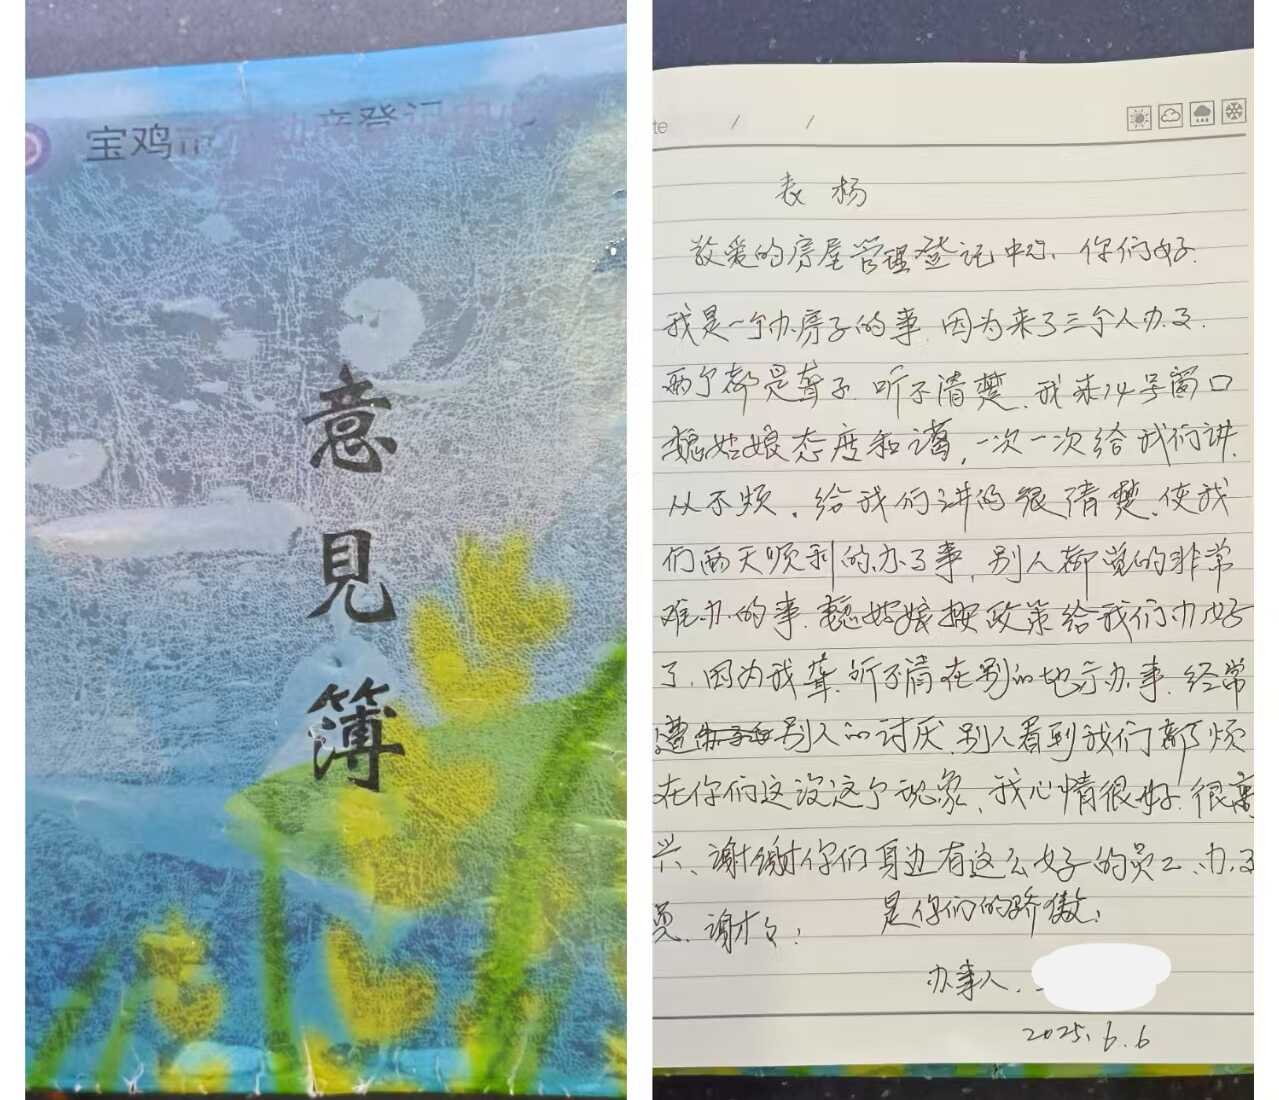 宝鸡市
产登记中心
意見簿
表扬
敬爱的房屋管理登记中心、你们好.
我是一个办房子的事.因为来了三个人办文.
两个都是聋子.听不清楚.我来14号窗口
魏姑娘态度和谒,一次一次给我们讲.
从不烦.给我们讲的很清楚.使我
们两天顺利的办了事.别人都觉的非常
难办的事.魏姑娘按政策给我们办好
了.因为我聋.听不清在别的地方办事.经常
遭别人的讨厌.别人看到我们都烦
在你们这没这个现象、我心情很好.很高
兴、谢谢你们身边有这么好的员工、办
员.谢谢! 是你们的骄傲!
办事人.
2025.6.6